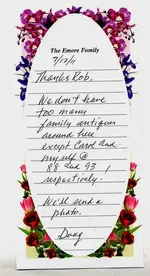 The Emore Family
9/12/11
Thanks Rob.
We don't have
too many
family antiques
around here
except Carol and
myself @
88 and 93
respectively.
We'll send a
photo.
Doug